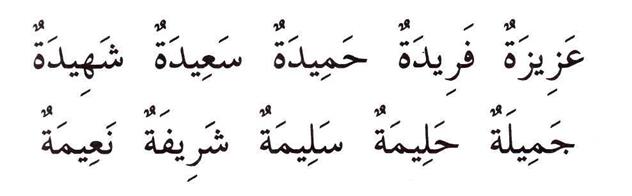 عَزِيزَةٌ فَرِيدَةٌ حَمِيدَةٌ سَعِيدَةٌ شَهِيدَةٌ
جَمِيلَةٌ حَلِيمَةٌ سَلِيمَةٌ شَرِيفَةٌ نَعِيمَةٌ